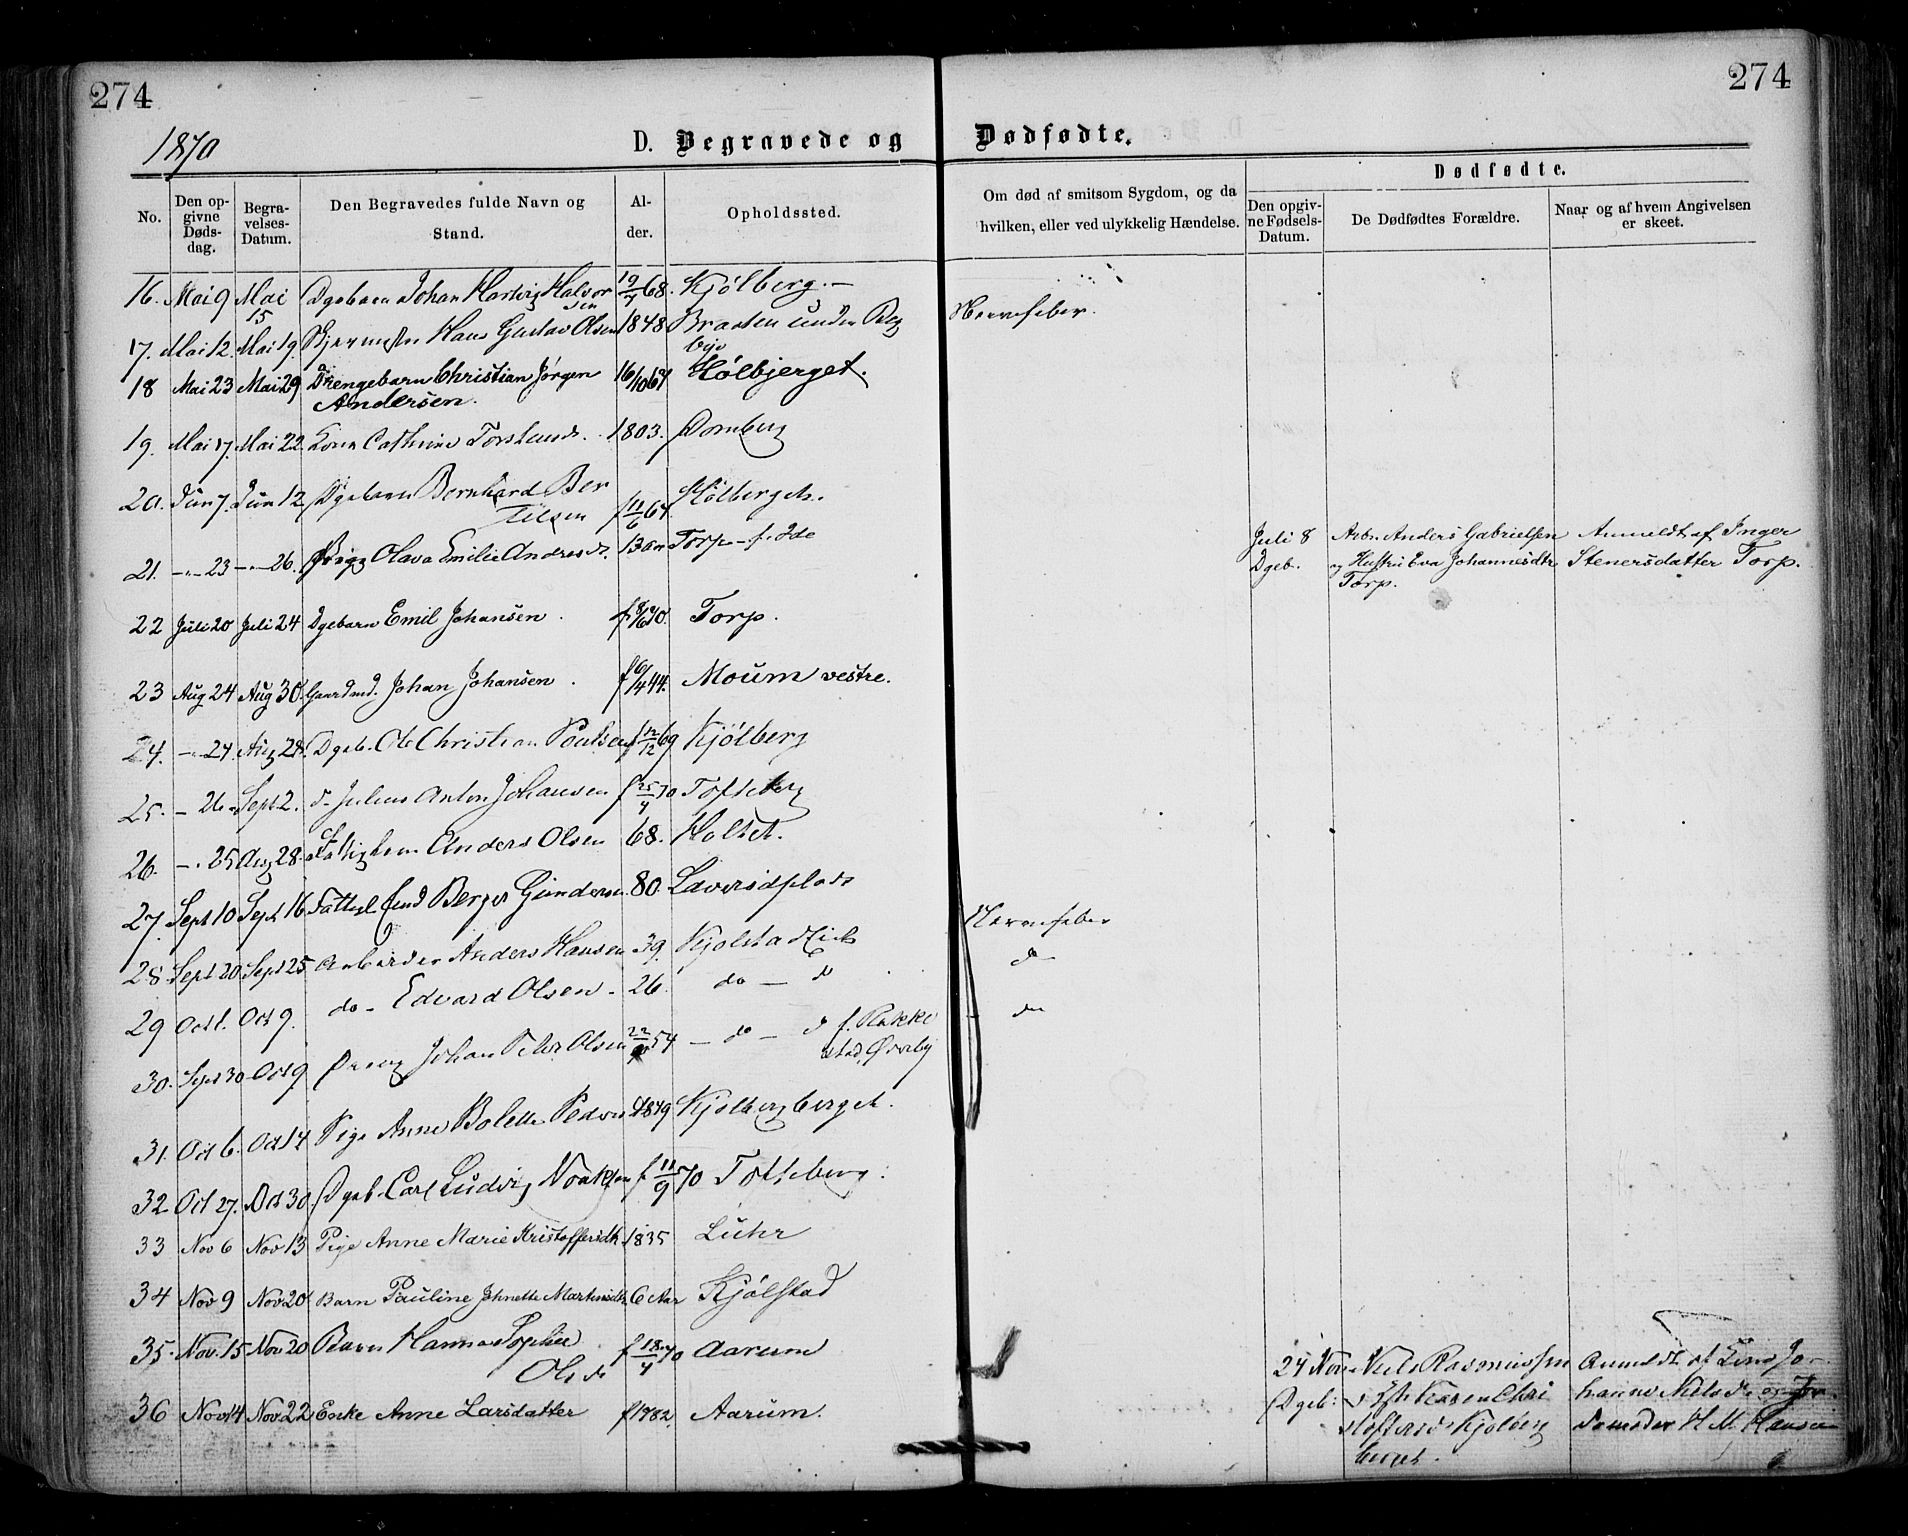 274
274
1870
D. Begravede og Dødfødte.
No.
Den opgivne Dødsdag.
Begravelses-Datum.
Den Begravedes fulde Navn og Stand.
Alder.
Opholdssted.
Om død af smitsom Sygdom, og da hvilken, eller ved ulykkelig Hændelse.
Dødfødte.
Den opgivne Fødsels-Datum.
De Dødfødtes Forældre.
Naar og af hvem Angivelsen er skeet.
16. Mai 9 Mai 15 Dgebarn Johan Hartvig Halvorsen 19/7 68. Kjølberg.
17. Mai 12. Mai 19. Hans Gustav Olsen 1848. Braaten under Begby Nervefeber.
18 Mai 23 Mai 29 Drengebarn Christian Jørgen Andersen. 16/10 67 Hølbjerget.
19. Mai 17. Mai 22. Kone Cathrine 1803.
20. Jun 7. Jun 12 Dgebarn Bernhard Bertilsen f 11/6 67. Hølberget.
21. -"- 23 -"- 26. Pige Olava Emilie Andresd. 13 Torp
Juli 8 Dgeb. Arb. Anders Gabrielsen og Hustru Eva Johannesdtr Torp. Anmeldt af Inger Stenersdatter Torp.
22 Juli 20 Juli 24 Dgebarn Emil Johansen. f 8/6 70. Torp.
23 Aug 24 Aug 30. Gaardmd. Johan Johansen. f 6/4 44. Moum vestre.
24. -"- 24. Aug 28. Dgeb. Ole Christian Poulsen f 12/12 69 Kjølberg
25. - 26 - Sept 2. d. Julius Anton Johansen f 25/4 70 Tofteberg
26. -"- 25 Aug 28. Anders Olsen 68. Holtet.
27. Sept 10 Sept 16 Berger Gundersen 80.
28. Sept 20 Sept 25 Arbeider Anders Hansen 39. Kjølstad Nervefeber
29 Oct 1. Oct 9. do - Edvard Olsen - 26. do - d do
30. Sept 30 Oct 9 Dreng Johan Peter Olsen 22/9 54 - do - d f. Rakkestad, do
31. Oct 6. Oct 14 Pige Anne Bolette 1849 Kjølbergberget.
32. Oct 27. Oct 30. Dgeb. Carl Ludvig Noaksen f 11/9 70 Tofteberg.
33 Nov 6 Nov 13 Pige Anne Marie Kristoffersdtr 1835 Luhr
34 Nov 9 Nov 20 Barn Pauline Martinsdtr 6 Aar Kjølstad
35. Nov. 15 Nov. 20 Barn Hanna Sophie Olsdr f 18/4 70 Aarum
36 Nov 14 Nov 22 Enke Anne Larsdatter f 1782. Aarum.
24 Nov. Dgeb. Niels Rasmussen Karen Christoffersd. Kjølbergberget. Anmeldt af